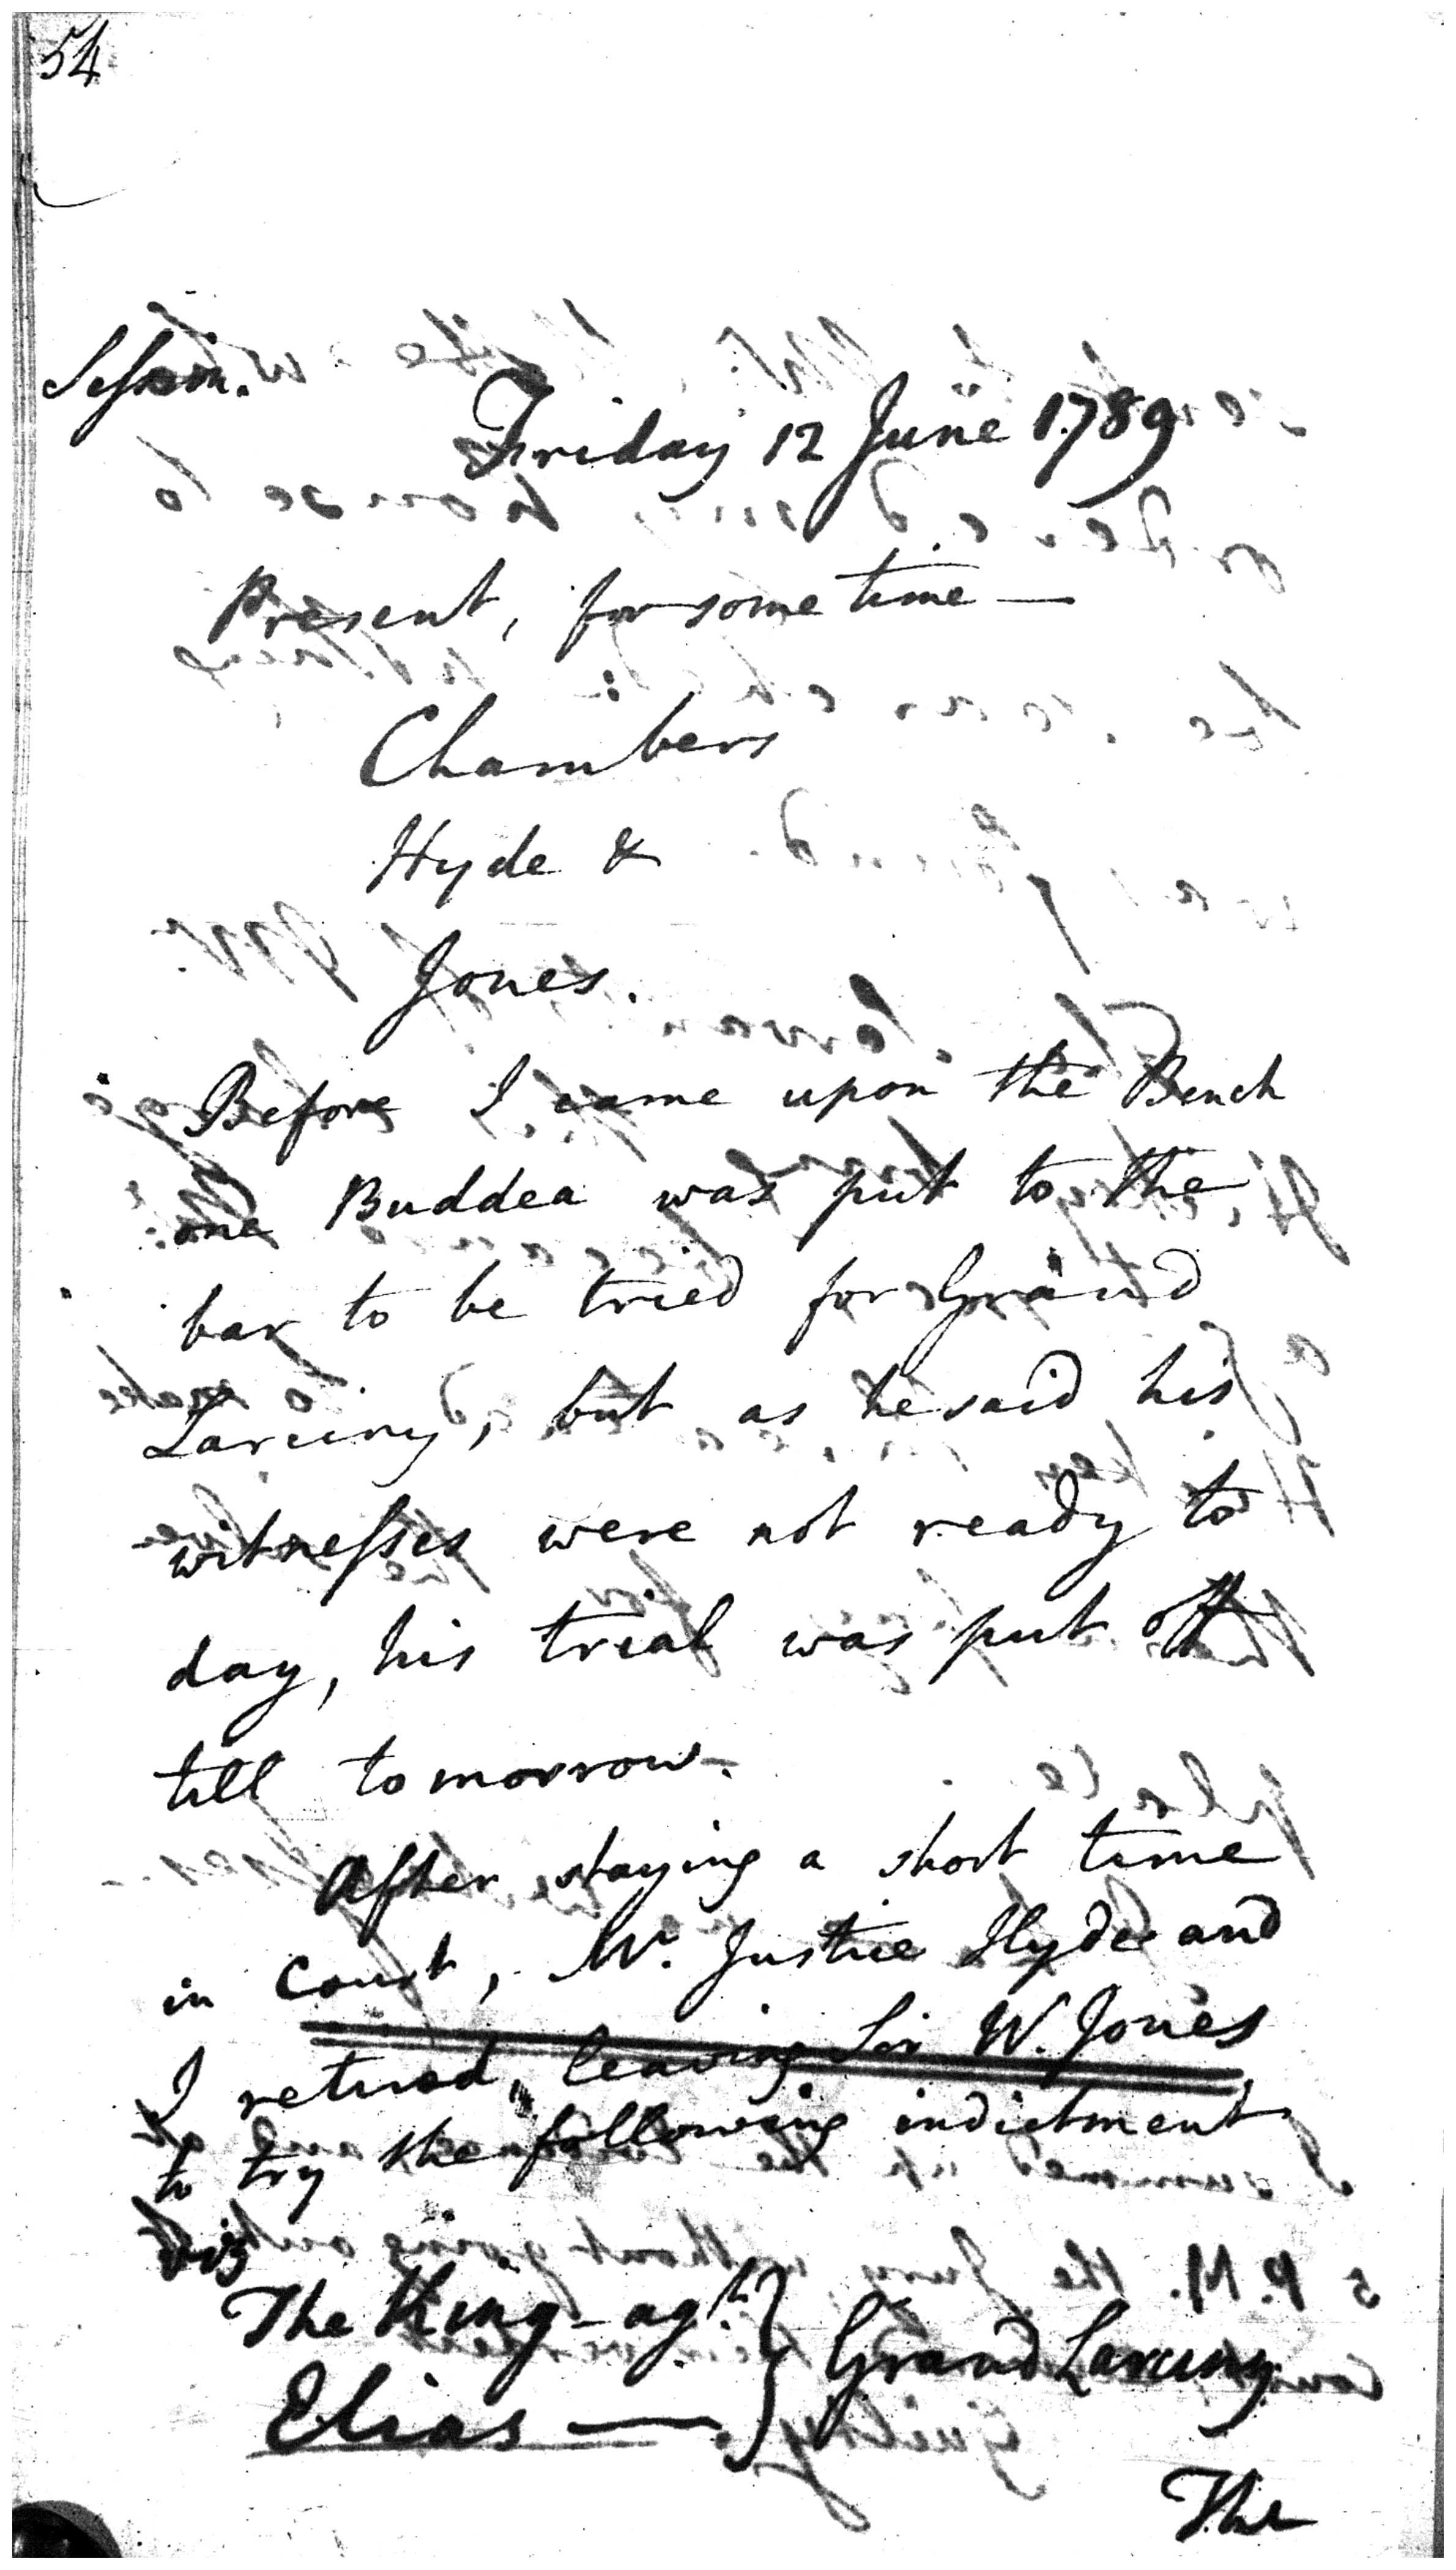 54
Session.
Friday 12 June 1789
Present, for some time —
Chambers
Hyde &
Jones.
Before I came upon the Bench
one Buddea was put to the
bar to be tried for Grand
Larceny, but as he said his
witnesses were not ready to
day, his trial was put off
till tomorrow.
After staying a short time
in Court, Mr. Justice Hyde and
I retired, leaving Sir W. Jones
to try the following indictment
viz
The King - agt. } Grand Larceny.
Elias —
The